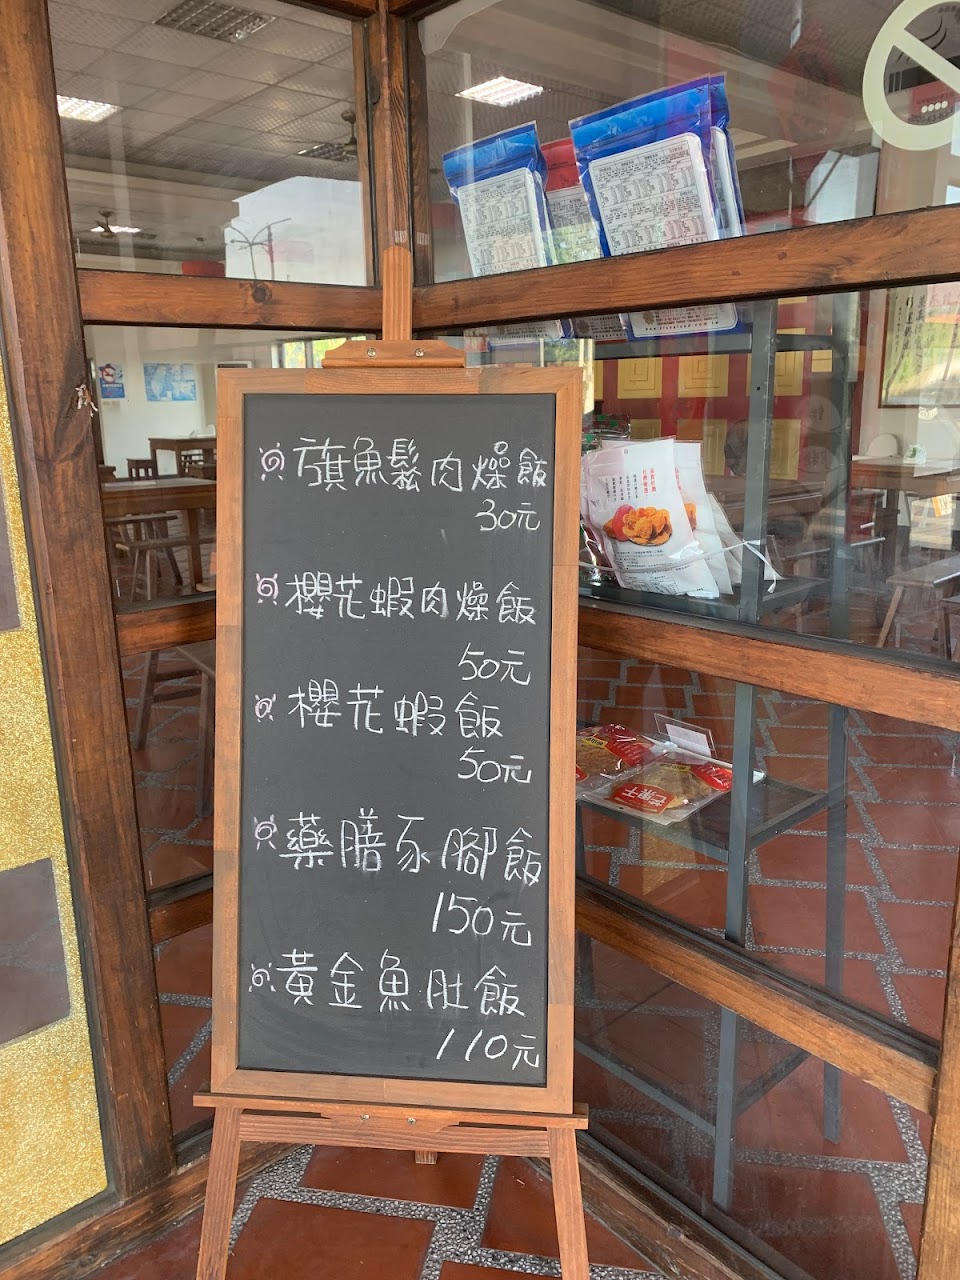 旗魚鬆肉燥飯
30元
櫻花蝦肉燥飯
50元
櫻花蝦飯
50元
藥膳豕腳飯
150元
黃金魚肚飯
110元
芒果干